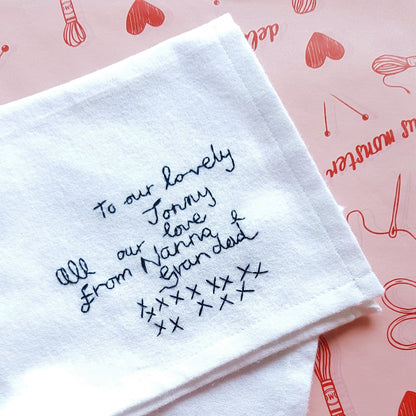 To our lovely
Jonny
All our love
From Nanna &
Grandad
x x x x x x x x
x x x x x
x x
us monster
del